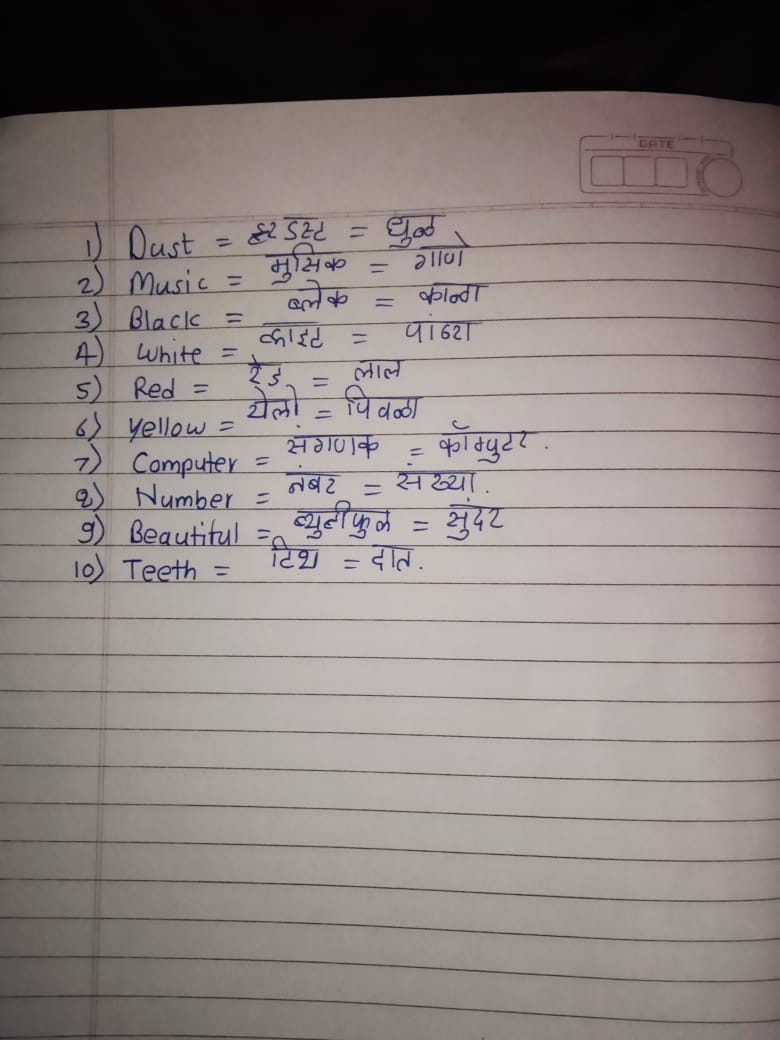 DATE
1) Dust = डस्ट = धुळ
2) Music = मुसिक = गाणे
3) Black = ब्लेक = काळा
4) White = व्हाइट = पांढरा
5) Red = रेड = लाल
6) Yellow = येलो = पिवळा
7) Computer = संगणक = कॉम्पुटर.
8) Number = नंबर = संख्या.
9) Beautiful = ब्युटीफुल = सुंदर
10) Teeth = टिथ = दात.